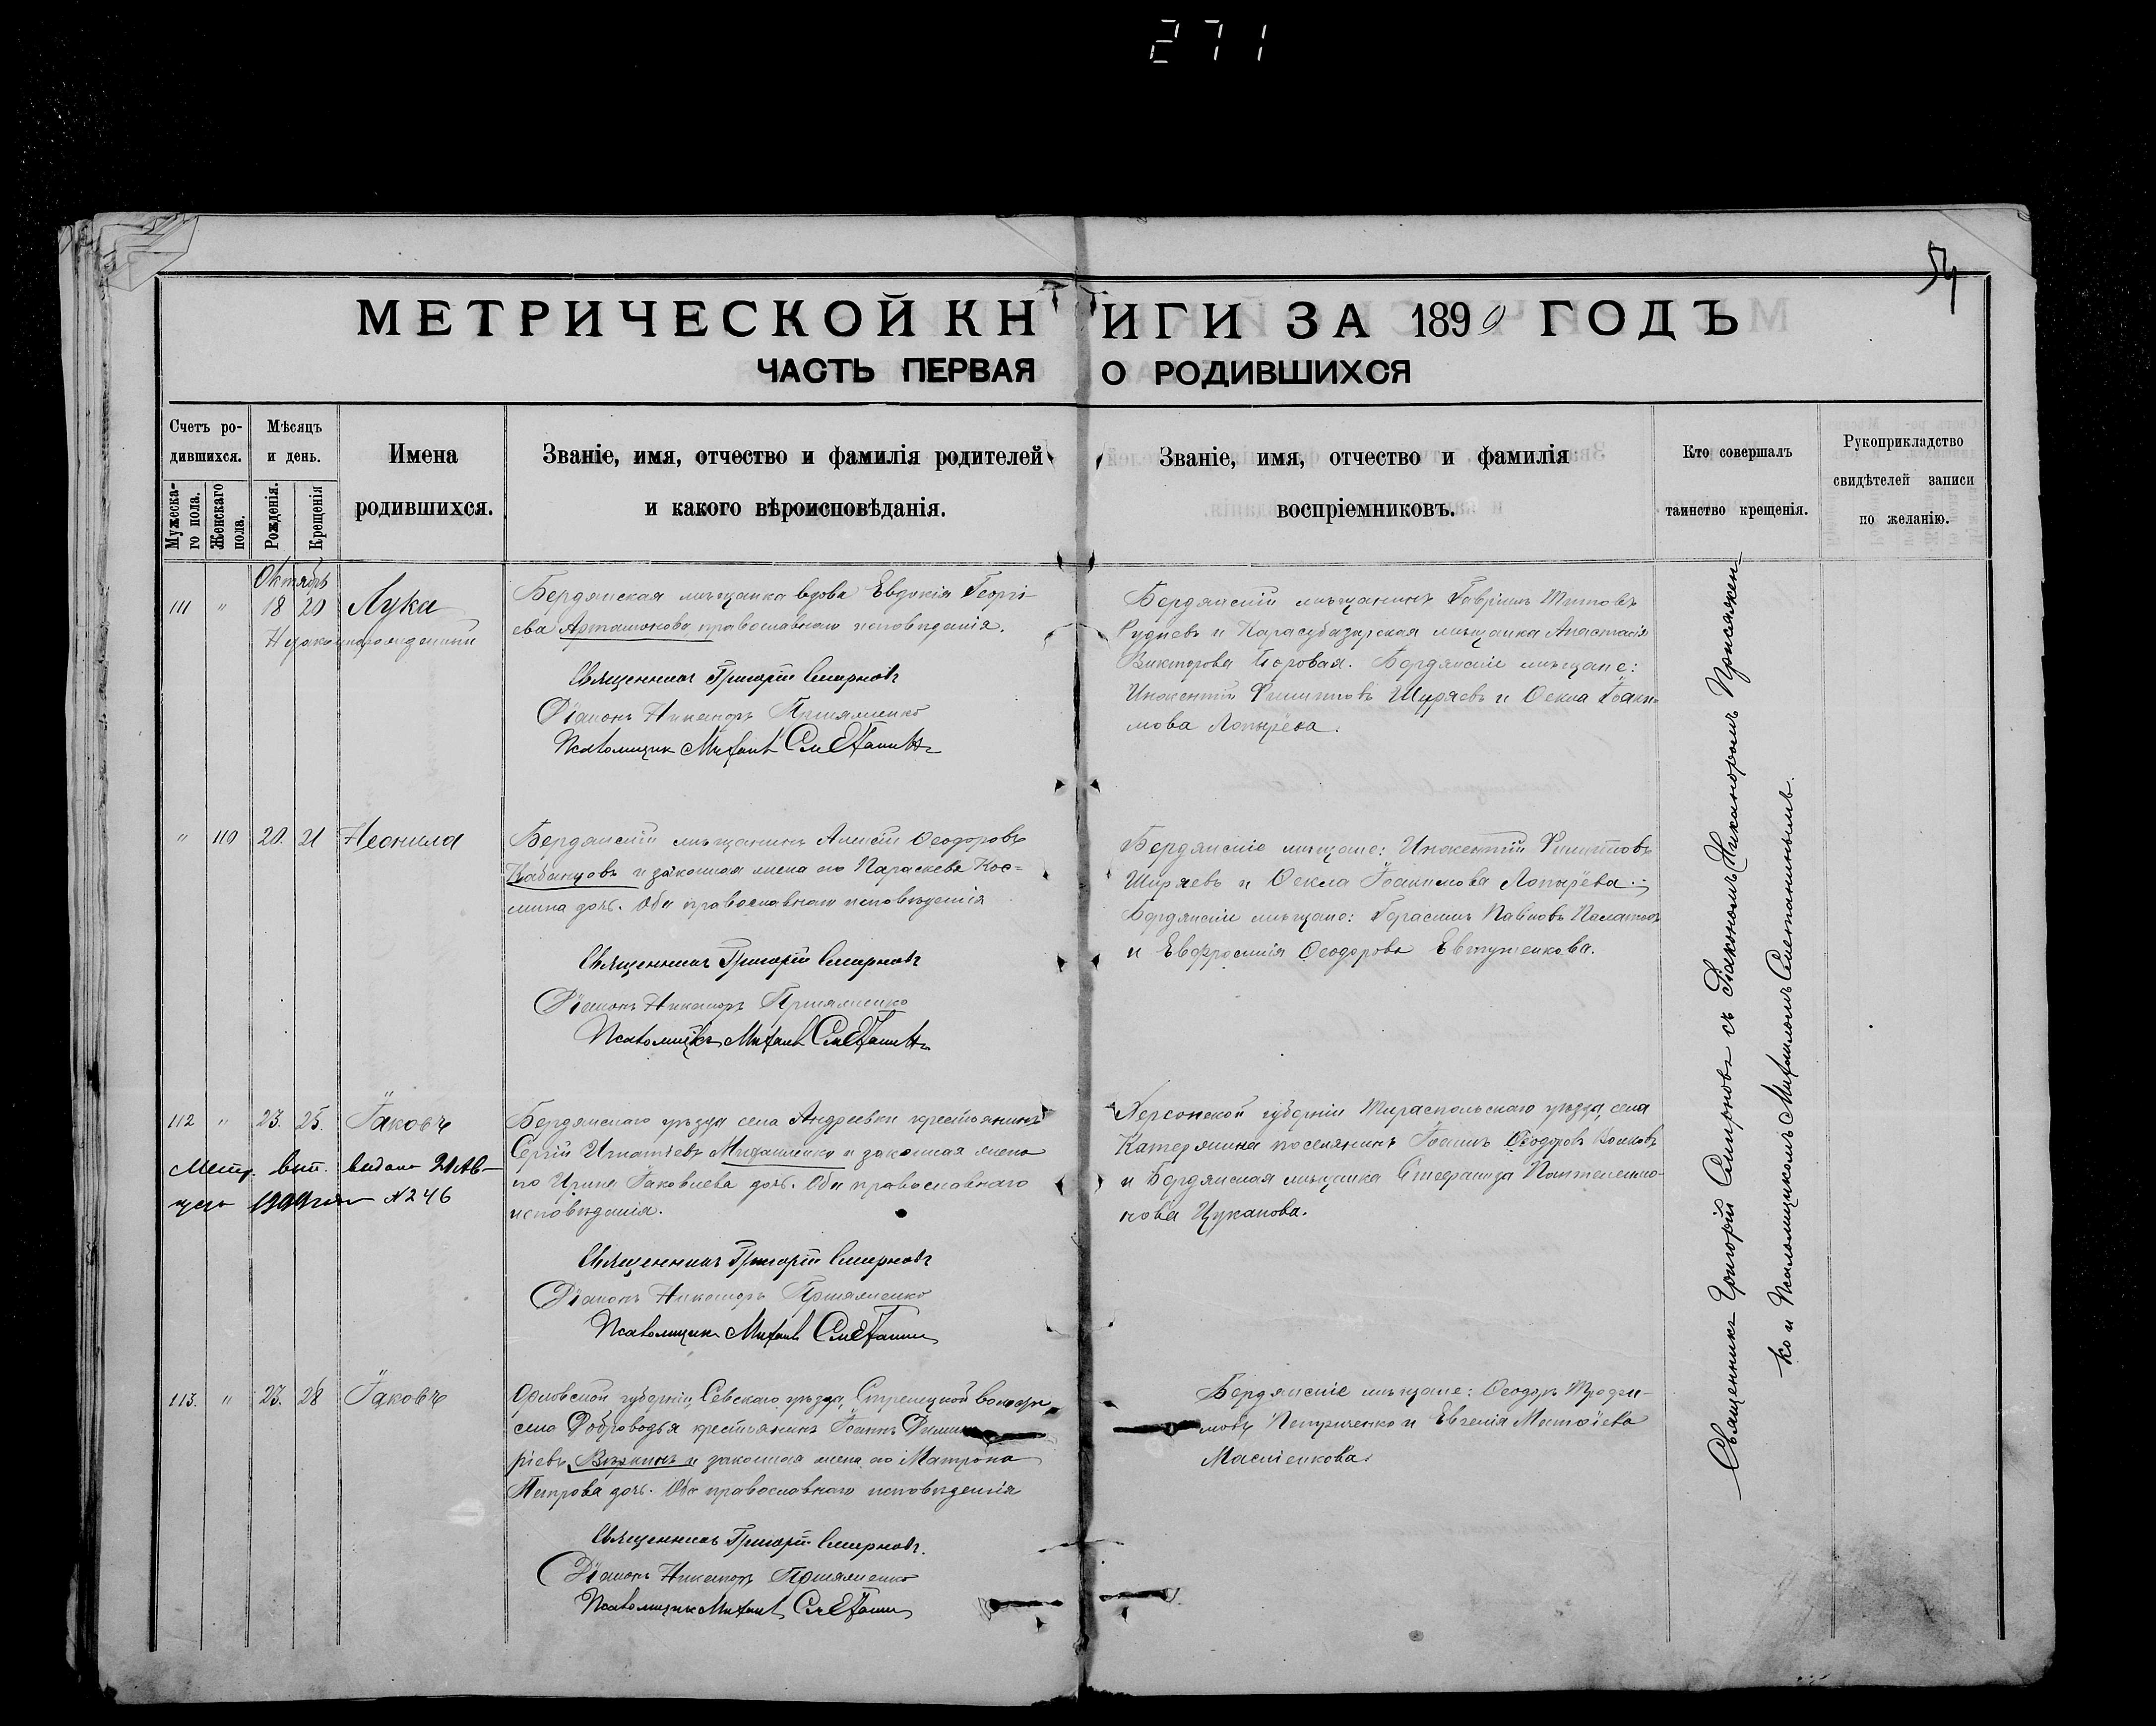 271
54
МЕТРИЧЕСКОЙ КНИГИ ЗА 1890 ГОДЪ
ЧАСТЬ ПЕРВАЯ О РОДИВШИХСЯ
Счетъ родившихся.
Мужескаго пола.
Женскаго пола.
Мѣсяцъ и день.
Рожденія.
Крещенія
Имена
родившихся.
Званіе, имя, отчество и фамилія родителей
и какого вѣроисповѣданія.
Званіе, имя, отчество и фамилія
воспріемниковъ.
Кто совершалъ
таинство крещенія.
Рукоприкладство
свидѣтелей записи
по желанію.
Октябрь
111 " 18 20 Лука
Незаконнорожденный
Бердянская мѣщанка вдова Евдокія Георгі-
ева Артамонова, православнаго исповѣданія.
Священникъ Григорій Смирновъ
Діаконъ Никаноръ Присяженко
Псаломщик Михаил Сметанинъ
Бердянскій мѣщанинъ Гавріилъ Титовъ
Рудневъ и Карасубазарская мѣщанка Анастасія
Викторова Боровая. Бердянскіе мѣщане:
Инокентій Филипповъ Ширяевъ и Ѳекла Іоаки-
мова Лопырёва.
" 110 20. 21 Неонила
Бердянскій мѣщанинъ Алексій Ѳеодоровъ
Кабанцовъ и законная жена его Параскева Кос-
мина дочь. Оба православнаго исповѣданія
Священникъ Григорій Смирновъ
Діаконъ Никаноръ Присяженко
Псаломщикъ Михаил Сметанинъ
Бердянскіе мѣщане: Инокентій Филипповъ
Ширяевъ и Ѳекла Іоакимова Лопырёва.
Бердянскіе мѣщане: Герасимъ Павловъ
и Евфросинія Ѳеодорова Евтушенкова.
112 " 23. 25. Іаковъ
Метр. вып. выдана 21 Ав-
N 246
Бердянскаго уѣзда села Андреевки крестьянинъ
Сергій Игнатіевъ Михайленко и законная жена
его Ирина Іаковлева дочь. Оба православнаго
исповѣданія.
Священникъ Григорій Смирновъ
Діаконъ Никаноръ Присяженко
Псаломщик Михаил Сметанин
Херсонской губерніи Тираспольскаго уѣзда, села
Катержина поселянинъ Іоаннъ Ѳеодоровъ Волковъ
и Бердянская мѣщанка Стефанида Пантелеимо-
нова Цуканова.
113. " 23. 28 Іаковъ
Орловской губерніи, Севскаго уѣзда, Стрелецкой волости,
села Доброводья крестьянинъ Іоаннъ Димит-
ріевъ и законная жена его Матрона
Петрова дочь. Оба православнаго исповѣданія
Священникъ Григорій Смирновъ.
Діаконъ Никаноръ Присяженко
Псаломщик Михаил Сметанин
Бердянскіе мѣщане: Ѳеодоръ Трофи-
мовъ Петриченко и Евгенія Матѳіева
Масленкова.
Священникъ Григорій Смирновъ съ Діакономъ Никаноромъ Присяжен-
ко и Псаломщикомъ Михаиломъ Сметанинымъ.